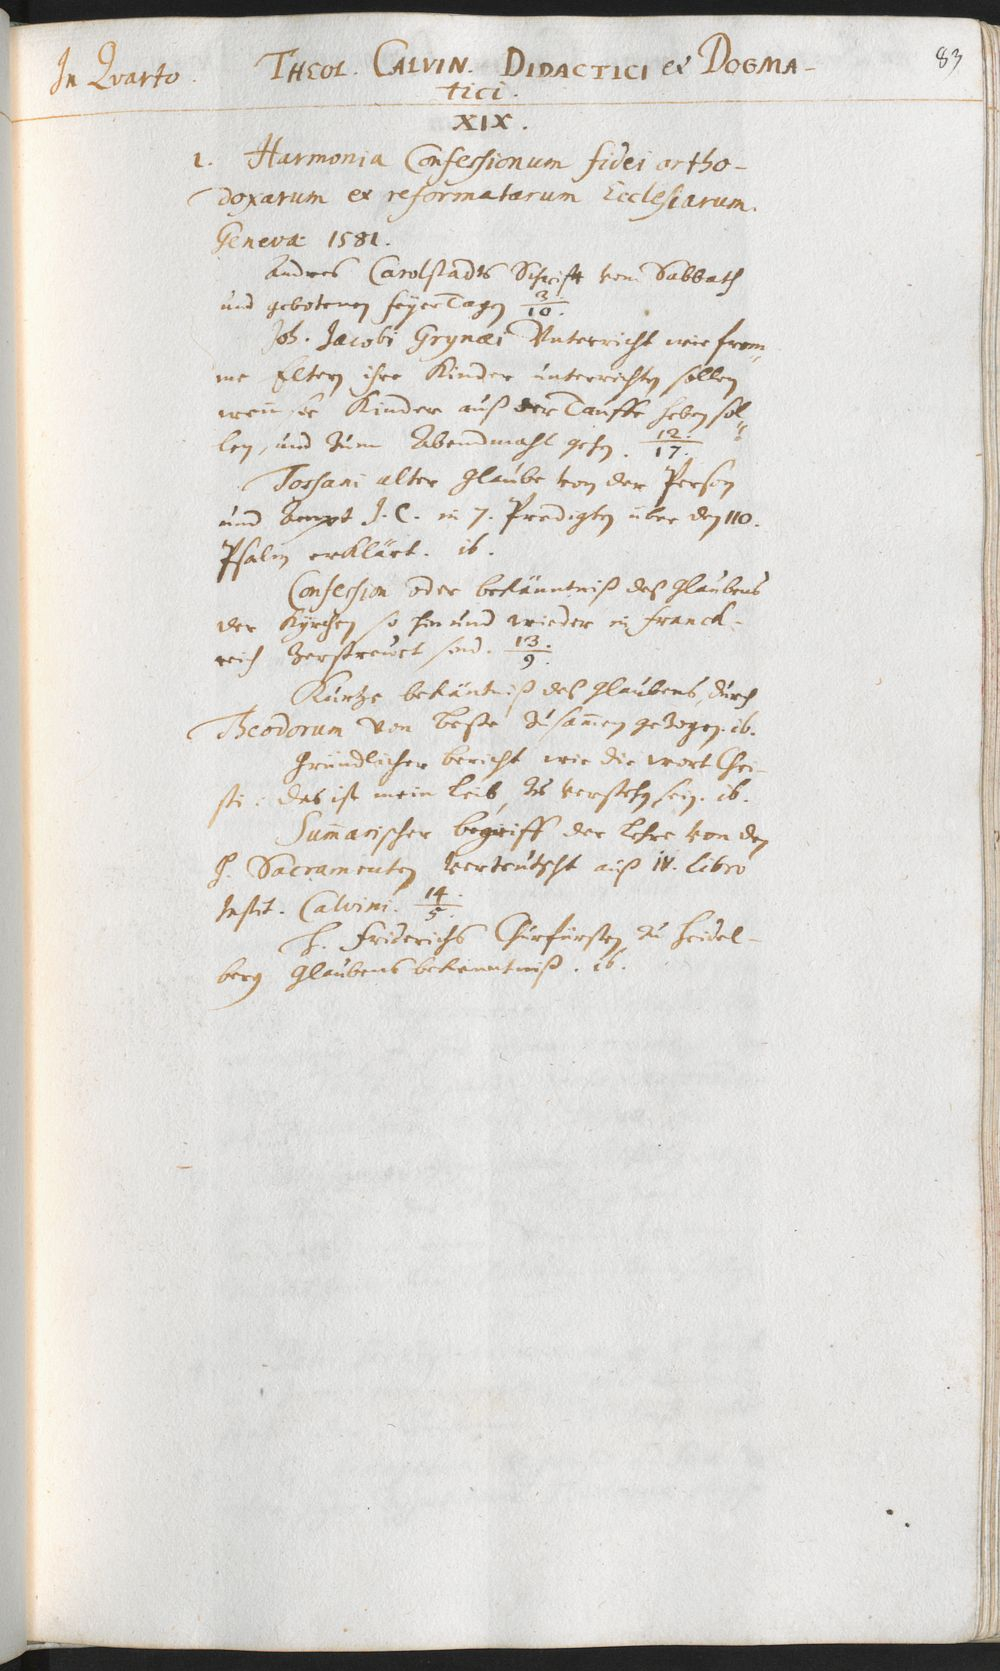 In Qvarto. THEOL. CALVIN. DIDACTICI et DOGMA-
tici.
83
XIX.
1. Harmonia Confessionum fidei ortho-
doxarum et reformatarum Ecclesiarum.
Genevæ 1581.
Andres Carolstadts Schrifft vom Sabbath
und gebotenen feyer Tagen 3/10.
Joh. Jacobi Grynæi Unterricht wie from-
me Eltern ihre Kinder unterrichten sollen
wenn sie Kinder auß der Tauffe heben sol-
len, und zum Abendmahl gehen. 12./17.
Tossani alter Glaube von der Person
und Ampt J. C. in 7. Predigten über den 110.
Psalm erklärt. ib.
Confession oder bekänntniß deß Glaubens
der Kyrchen so hin und wieder in Franck-
reich zerstreuet sind. 13./9.
Kurtze bekäntniß deß Glaubens, durch
Theodorum von Besze zusam̄en gezogen. ib.
Gründlicher bericht wie die wort Chri-
sti: das ist mein leib, zu verstehen sein. ib.
Sum̄arischer begriff der Lehre von den
H. Sacramenten verteutscht auß IV. Libro
Instit. Calvini. 14./5.
H. Friderichs Churfürsten zu Heidel-
berg Glaubens bekenntniß. ib.